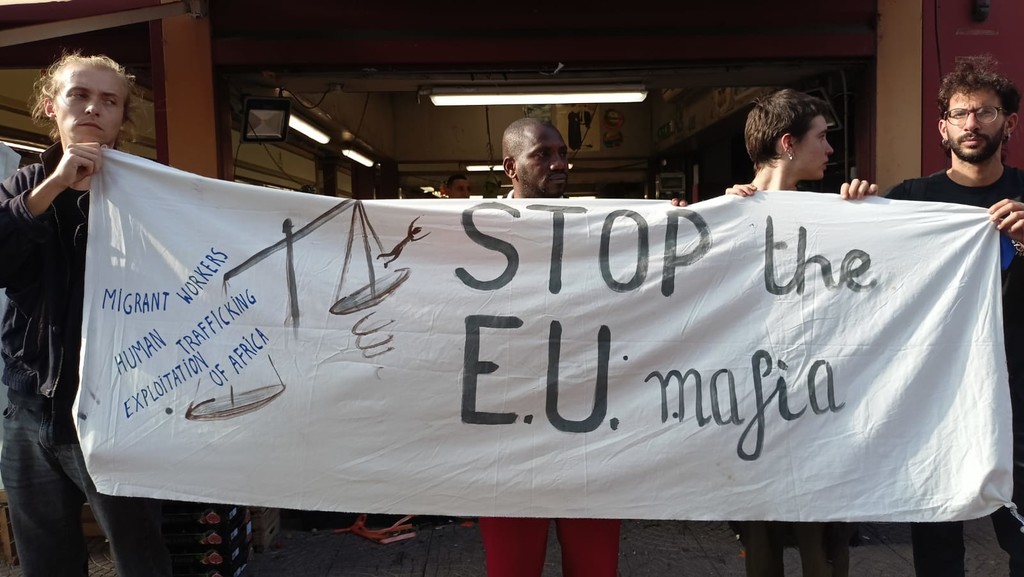 MIGRANT WORKERS
HUMAN TRAFFICKING
EXPLOITATION
OF AFRICA
STOP the
E.U. mafia